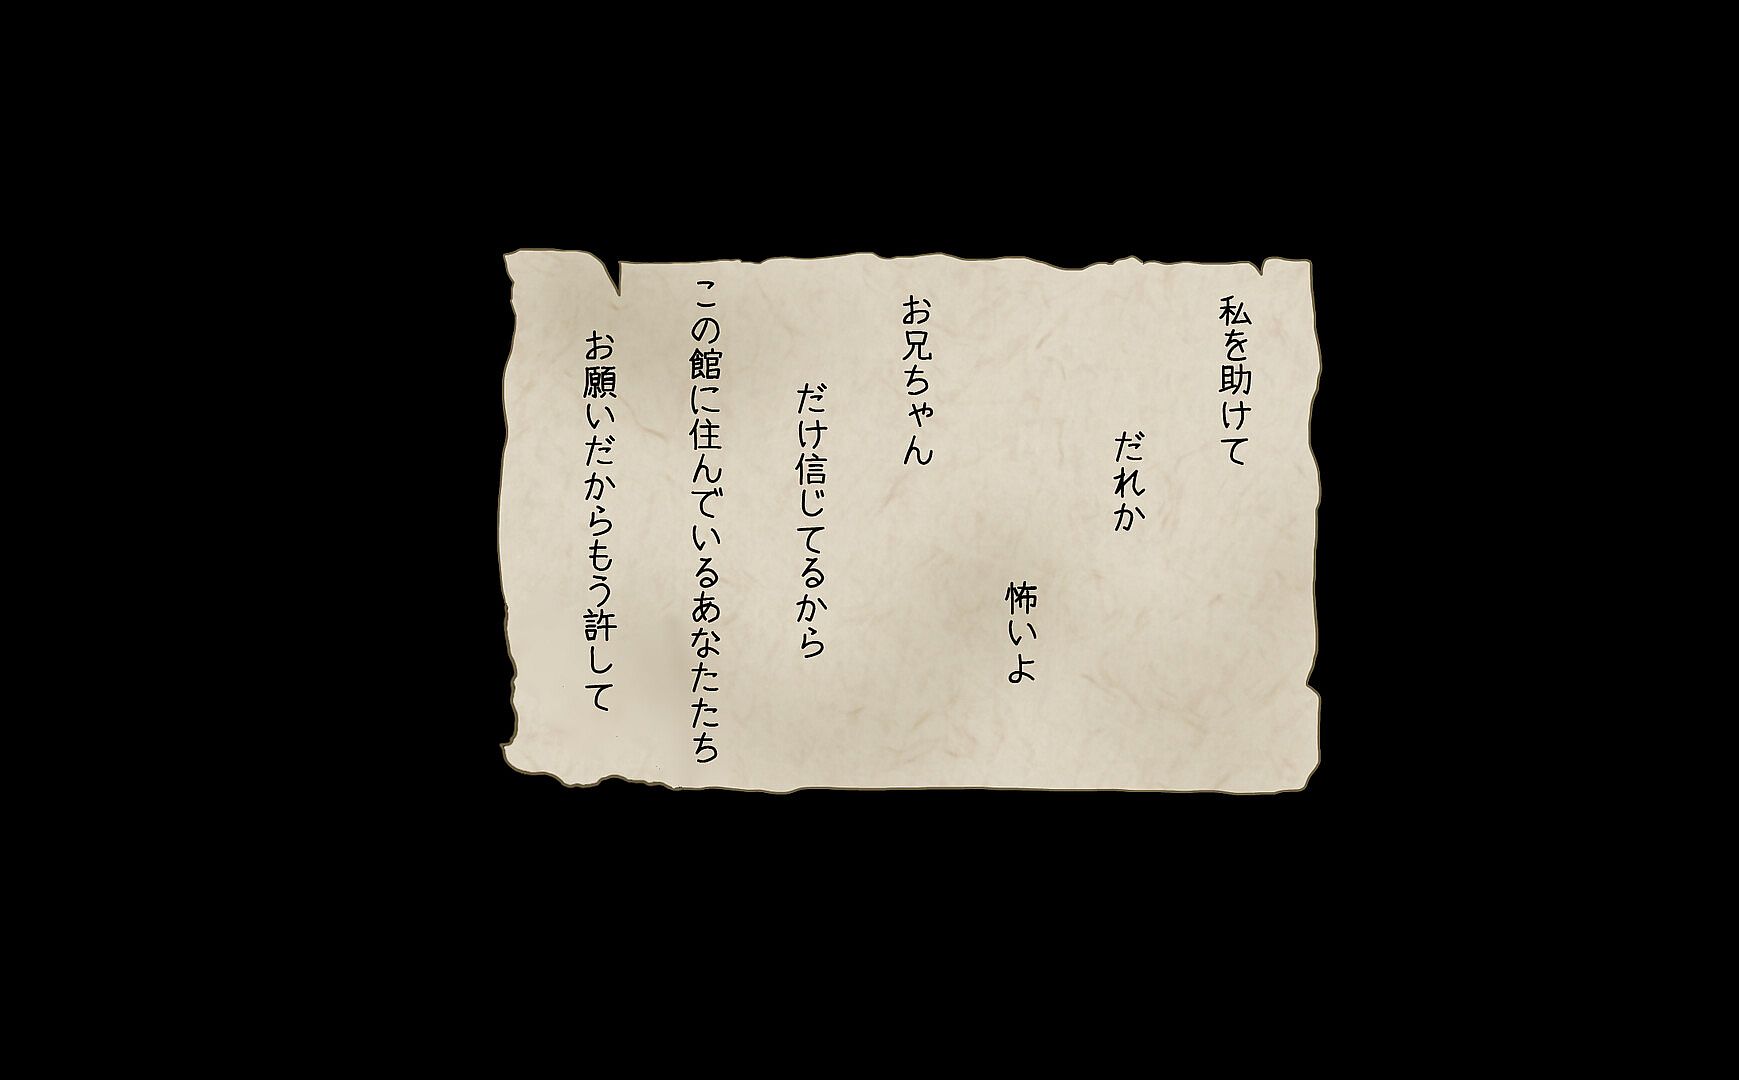 私を助けて
だれか
怖いよ
お兄ちゃん
だけ信じてるから
この館に住んでいるあなたたち
お願いだからもう許して